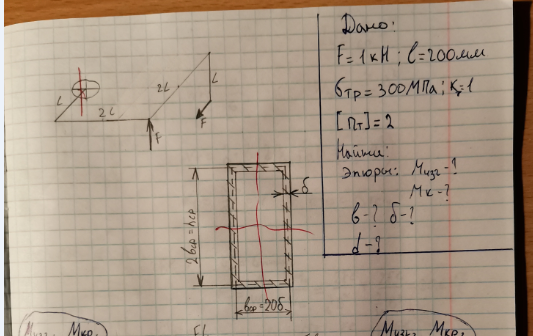 Дано:
F = 1кН ; l = 200мм
σтр = 300МПа ; K = 1
[nт] = 2
Найти:
Эпюры: Мизг - ?
Мк - ?
в - ? δ - ?
d - ?
l
2l
2l
l
F
F
δ
2вср = hср
вср = 20δ
Мизг, Мкр,
Мизг, Мкр,